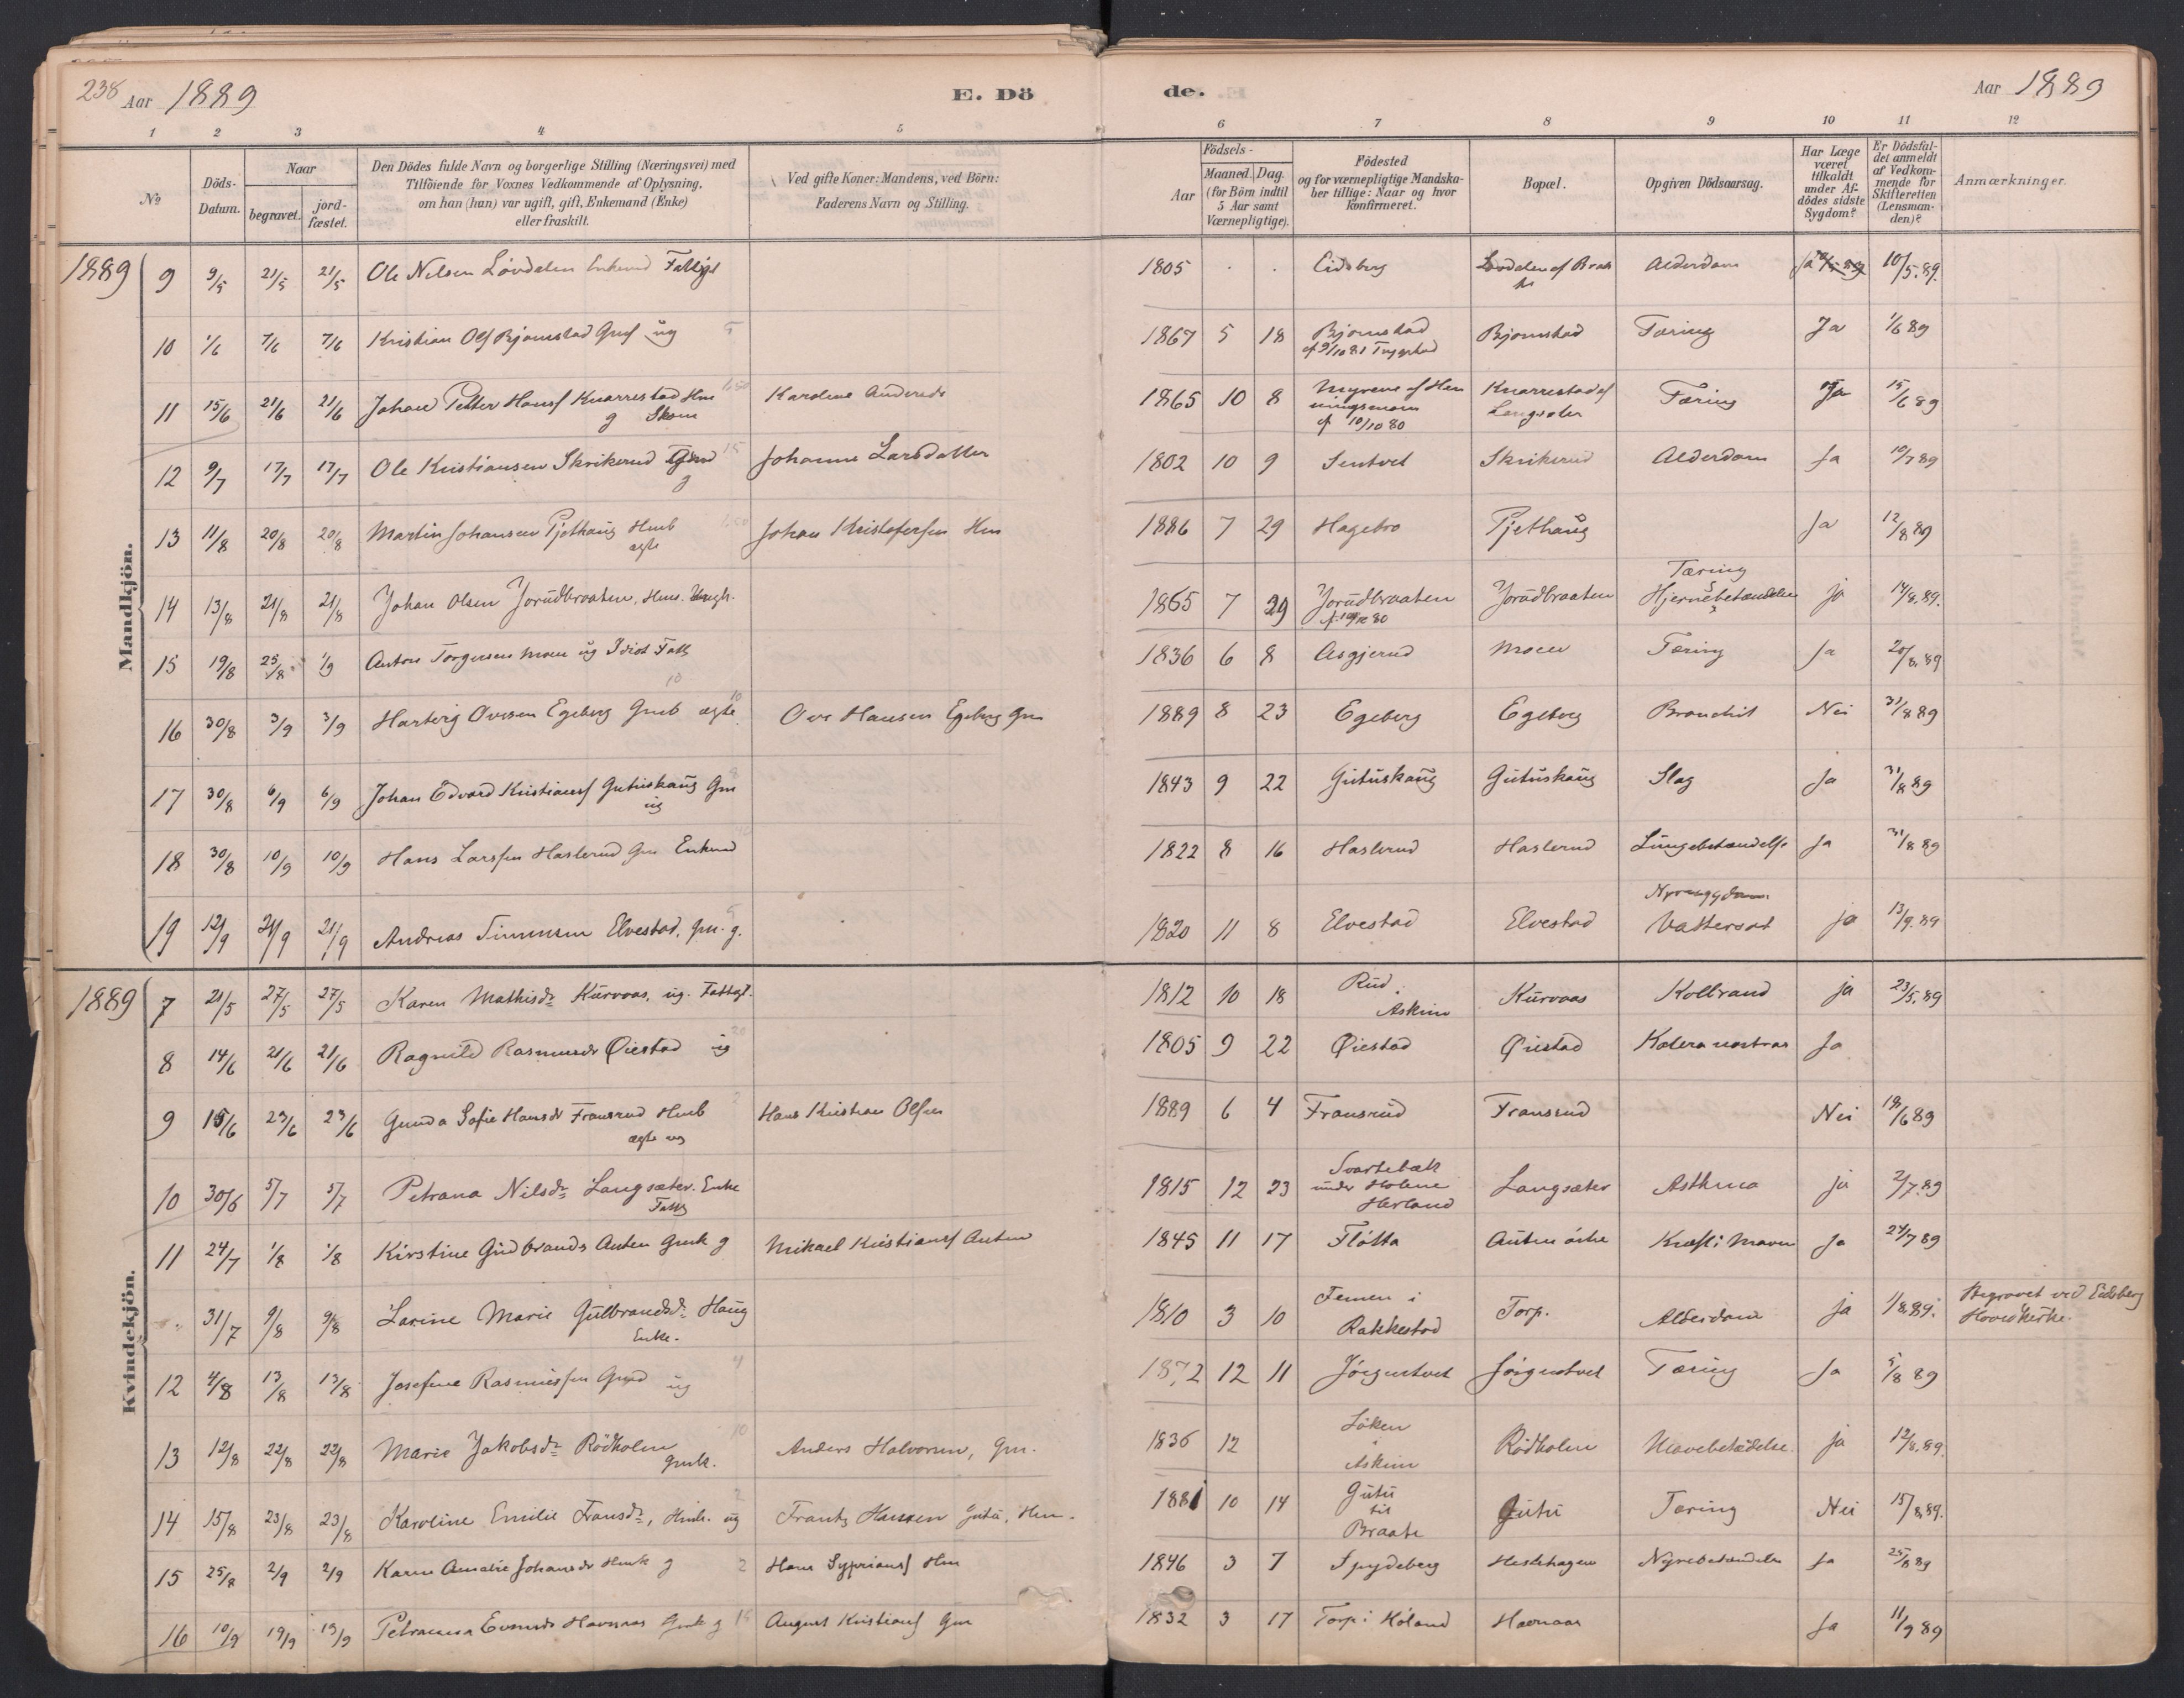 238 Aar 1889 E. Dö de. Aar 1889
1 2 3 4 5 6 7 8 9 10 11 12
No
Döds-Datum.
Naar
begravet.
jord-fæstet.
Den Dödes fulde Navn og borgerlige Stilling (Næringsvei) med
Tilföiende for Voxnes Vedkommende af Oplysning,
om han (hun) var ugift, gift, Enkemand (Enke)
eller fraskilt.
Ved gifte Koner: Mandens, ved Börn:
Faderens Navn og Stilling.
Födsels-
Aar
Maaned. Dag.
(for Börn indtil
5 Aar samt
Værnepligtige).
Födested
og for værnepligtige Mandska-
ber tillige: Naar og hvor
konfirmeret.
Bopæl.
Opgiven Dödsaarsag.
Har Læge
været
tilkaldt
under Af-
dödes sidste
Sygdom?
Er Dödsfal-
det anmeldt
af Vedkom-
mende for
Skifteretten
(Lensman-
den)?
Anmærkninger.
Mandkjön.
1889 9 9/5 21/5 21/5 Ole Nilsen Lövdalen Enkemd Fattigl 1805 Eidsberg Alderdom Ja 10/5.89.
10 1/6 7/6 7/6 Kristian Ols Bjørnstad ug 5 1867 5 18 Bjørnstad Bjørnstad Tæring Ja 1/6 89
11 15/6 21/6 21/6 Johan Petter Hans Knarrestad Hm g Karoline Andersdr 1865 10 8 10/10 80 Knarrestad Langsæter Tæring Ja 15/6 89
12 9/7 17/7 17/7 Ole Kristiansen Skrikerud g 15 Johanne Larsdatter 1802 10 9 Sentvet Skrikerud Alderdom Ja 10/7 89
13 11/8 20/8 20/8 Martin Johansen Pjethaug Hmb ægte Johan Kristofersen Hm 1886 7 29 Hagebro Pjethaug Ja 12/8 89
14 13/8 21/8 21/8 Johan Olsen Jorudbraaten, Hms. 1865 7 29 Jorudbraaten Jorudbraaten Tæring Hjernebetændelse ja 14/8.89.
15 19/8 25/8 1/9 Anton Torgersen Moen ug Idiot Fatt 10 1836 6 8 Asgjerud Moen Tæring Ja 20/8.89
16 30/8 3/9 3/9 Hartvig Ovesen Egeberg Gmb ægte 10 Ove Hansen Egeberg Gm 1889 8 23 Egeberg Egeberg Nei 31/8 89
17 30/8 6/9 6/9 Johan Edvard Kristians Gutuskaug Gm ug 1843 9 22 Gutuskaug Gutuskaug Slag Ja 31/8 89
18 30/8 10/9 10/9 Hans Larssen Haslerud Gm Enkemd 1822 8 16 Haslerud Haslerud Lungebetændelse Ja 31/8 89
19 12/9 21/9 21/9 Andreas Simensen Elvestad, Gm. g. 1820 11 8 Elvestad Elvestad Vattersot ja 13/9.89
Kvindekjön.
1889 7 21/5 27/5 27/5 Karen Mathisdr Kurvaas, ug. Fattigl. 1812 10 18 Rud i Askim Kurvaas Kolbrand ja 23/5.89
8 14/6 21/6 21/6 Ragnild Rasmusdr Øiestad ug 20 1805 9 22 Øiestad Øiestad Kolera nostras Ja
9 15/6 23/6 23/6 Gunda Sofie Hansdr Fransrud Hmb ægte ug Hans Kristian Olsen 1889 6 4 Fransrud Fransrud Nei 18/6 89
10 30/6 5/7 5/7 Petrana Nilsdr Langsæter. Enke Fattig 1815 12 23 Svartebæk under Holene Hærland Langsæter Asthma ja 2/7.89
11 24/7 1/8 1/8 Kirstine Gudbrands Auten Gmk g Mikael Kristians Auten 1845 11 17 Fløtta Auten Kræft i Maven Ja 24/7 89
" 31/7 9/8 9/8 Larine Marie Gulbrandsdr Haug Enke. 1810 3 10 Femen i Rakkestad Torp. Alderdom ja 1/8.89. Begravet ved Eidsberg Hovedkirke.
12 4/8 13/8 13/8 Josefine Rasmussen ug 4 1872 12 11 Jørgentvet Jørgentvet Tæring Ja 5/8 89
13 12/8 22/8 22/8 Marie Jakobsdr Rödholen Gmk. 10 Anders Halvorsen, Gm. 1836 12 Løken i Askim Rödholen Mavebetædelse. ja 12/8.89.
14 15/8 23/8 23/8 Karoline Emilie Fransdr, Hmb. ug 2 Frants Hansen Gutu, Hm. 1881 10 14 Gutu til Braate Gutu Tæring Nei 15/8.89.
15 25/8 2/9 2/9 Karen Amalie Johansdr Hmk g 2 Hans Syprians Hm 1846 3 7 Spydeberg Hestehagen Nyrebetændelse Ja 25/8 89
16 10/9 19/9 19/9 Petramna Evensdr Havnaas Gmk g 15 August Kristians Gm 1832 3 17 Torp i Høland Havnaas Ja 11/9 89